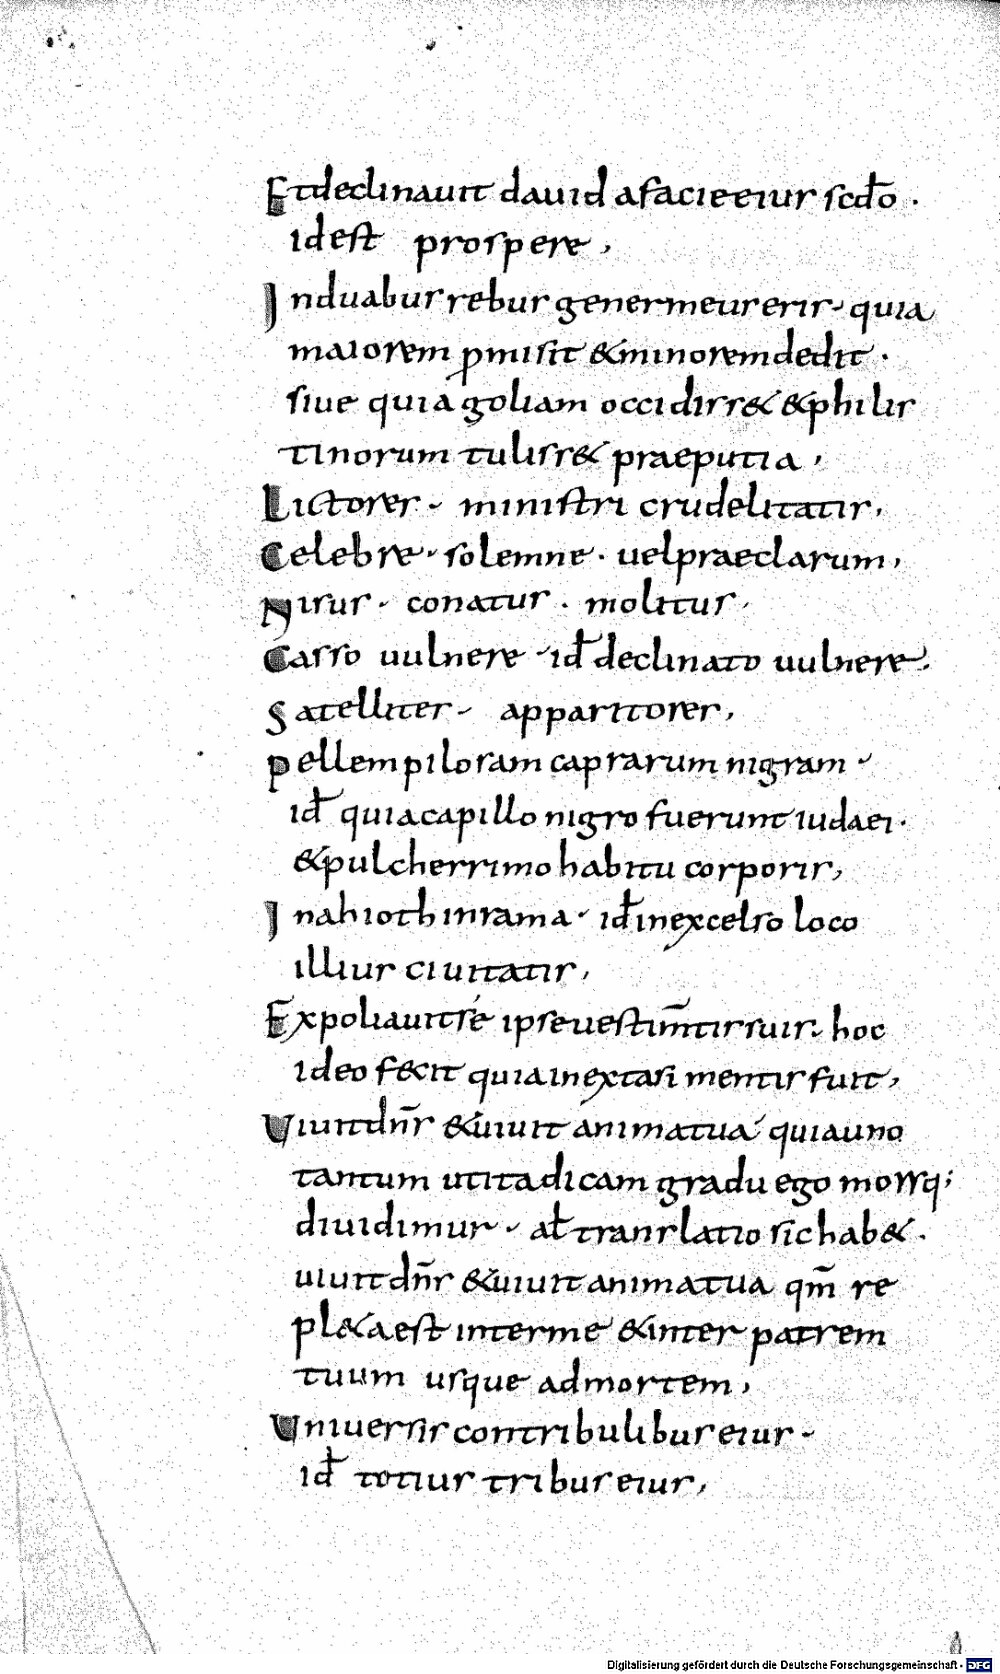 Et declinauit dauid a facie eius scdo .
id est prospere ,
In duabus rebus gener meus eris quia
maiorem pmisit & minorem dedit .
siue quia goliam occidiss& & philis
tinorum tuliss& praeputia ,
Lictores ministri crudelitatis ,
Celebre . solemne . uel praeclarum ,
Nisus . conatur . molitus ,
Casso uulnere id declinato uulnere .
Satellites apparitores ,
Pellem pilosam caprarum nigram
id quia capillo nigro fuerunt iudaei .
& pulcherrimo habitu corporis ,
In ahioth in rama id in excelso loco
illius ciuitatis ,
Expoliauit sé ipse uestimtis suis . hoc
ideo fecit quia in extasi mentis fuit ,
Viuit dns & uiuit anima tua quia uno
tantum ut ita dicam gradu ego morsq;
diuidimur . al translatio sic hab& .
uiuit dns & uiuit anima tua qm re
pl&a est inter me & inter patrem
tuum usque ad mortem ,
Uniuersis contribulibus eius
id totius tribus eius ,
Digitalisierung gefördert durch die Deutsche Forschungsgemeinschaft - DFG